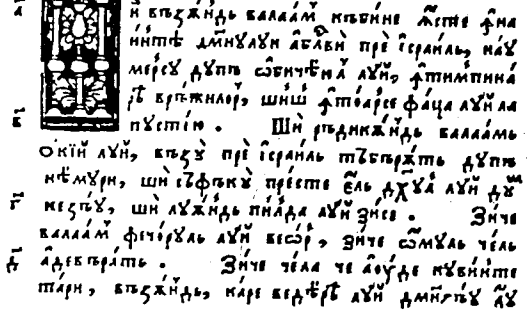 а҃ И҆ вѣзѫ́ндь валаа́м къби́не ꙗ҆́сте ꙟ҆на
и́нтѣ дм҃нꙋлꙋи а҆бл҃вѝ прѐ і҆сраи́ль, наꙋ
ме́рсꙋ дꙋпъ ѡ҆бичѣюл лꙋй, ꙟ҆тимпина
рѣ врѫжилор, шиш ꙟ҆тоа́рсе фа́ца лꙋй ла
в҃ пꙋсті́ю. Шѝ рѣдикѫ́ндь валаа́мь
ѻ́кїй лꙋй, възꙋ̀ прѐ і҆сраи́ль тъбърѫ́ть дꙋпъ
нѣ́мꙋри, ши съфъкꙋ̀ пре́сте є҆́ль дх҃ꙋл лꙋй дꙋм
г҃ незъ́ꙋ, шѝ лꙋѫ́ндь пи́лда лꙋй зи́се. Зи́че
валаа́м фечо́рꙋль лꙋй веѡ́р, зи́че ѡ҆́мꙋль че́ль
д҃ а҆девъра́ть. Зи́че че́ла че аꙋ́де кꙋви́нте
та́ри, възѫ́ндь, ка́ре ведѣ́рѣ лꙋй дмнзъꙋ а҆ꙋ